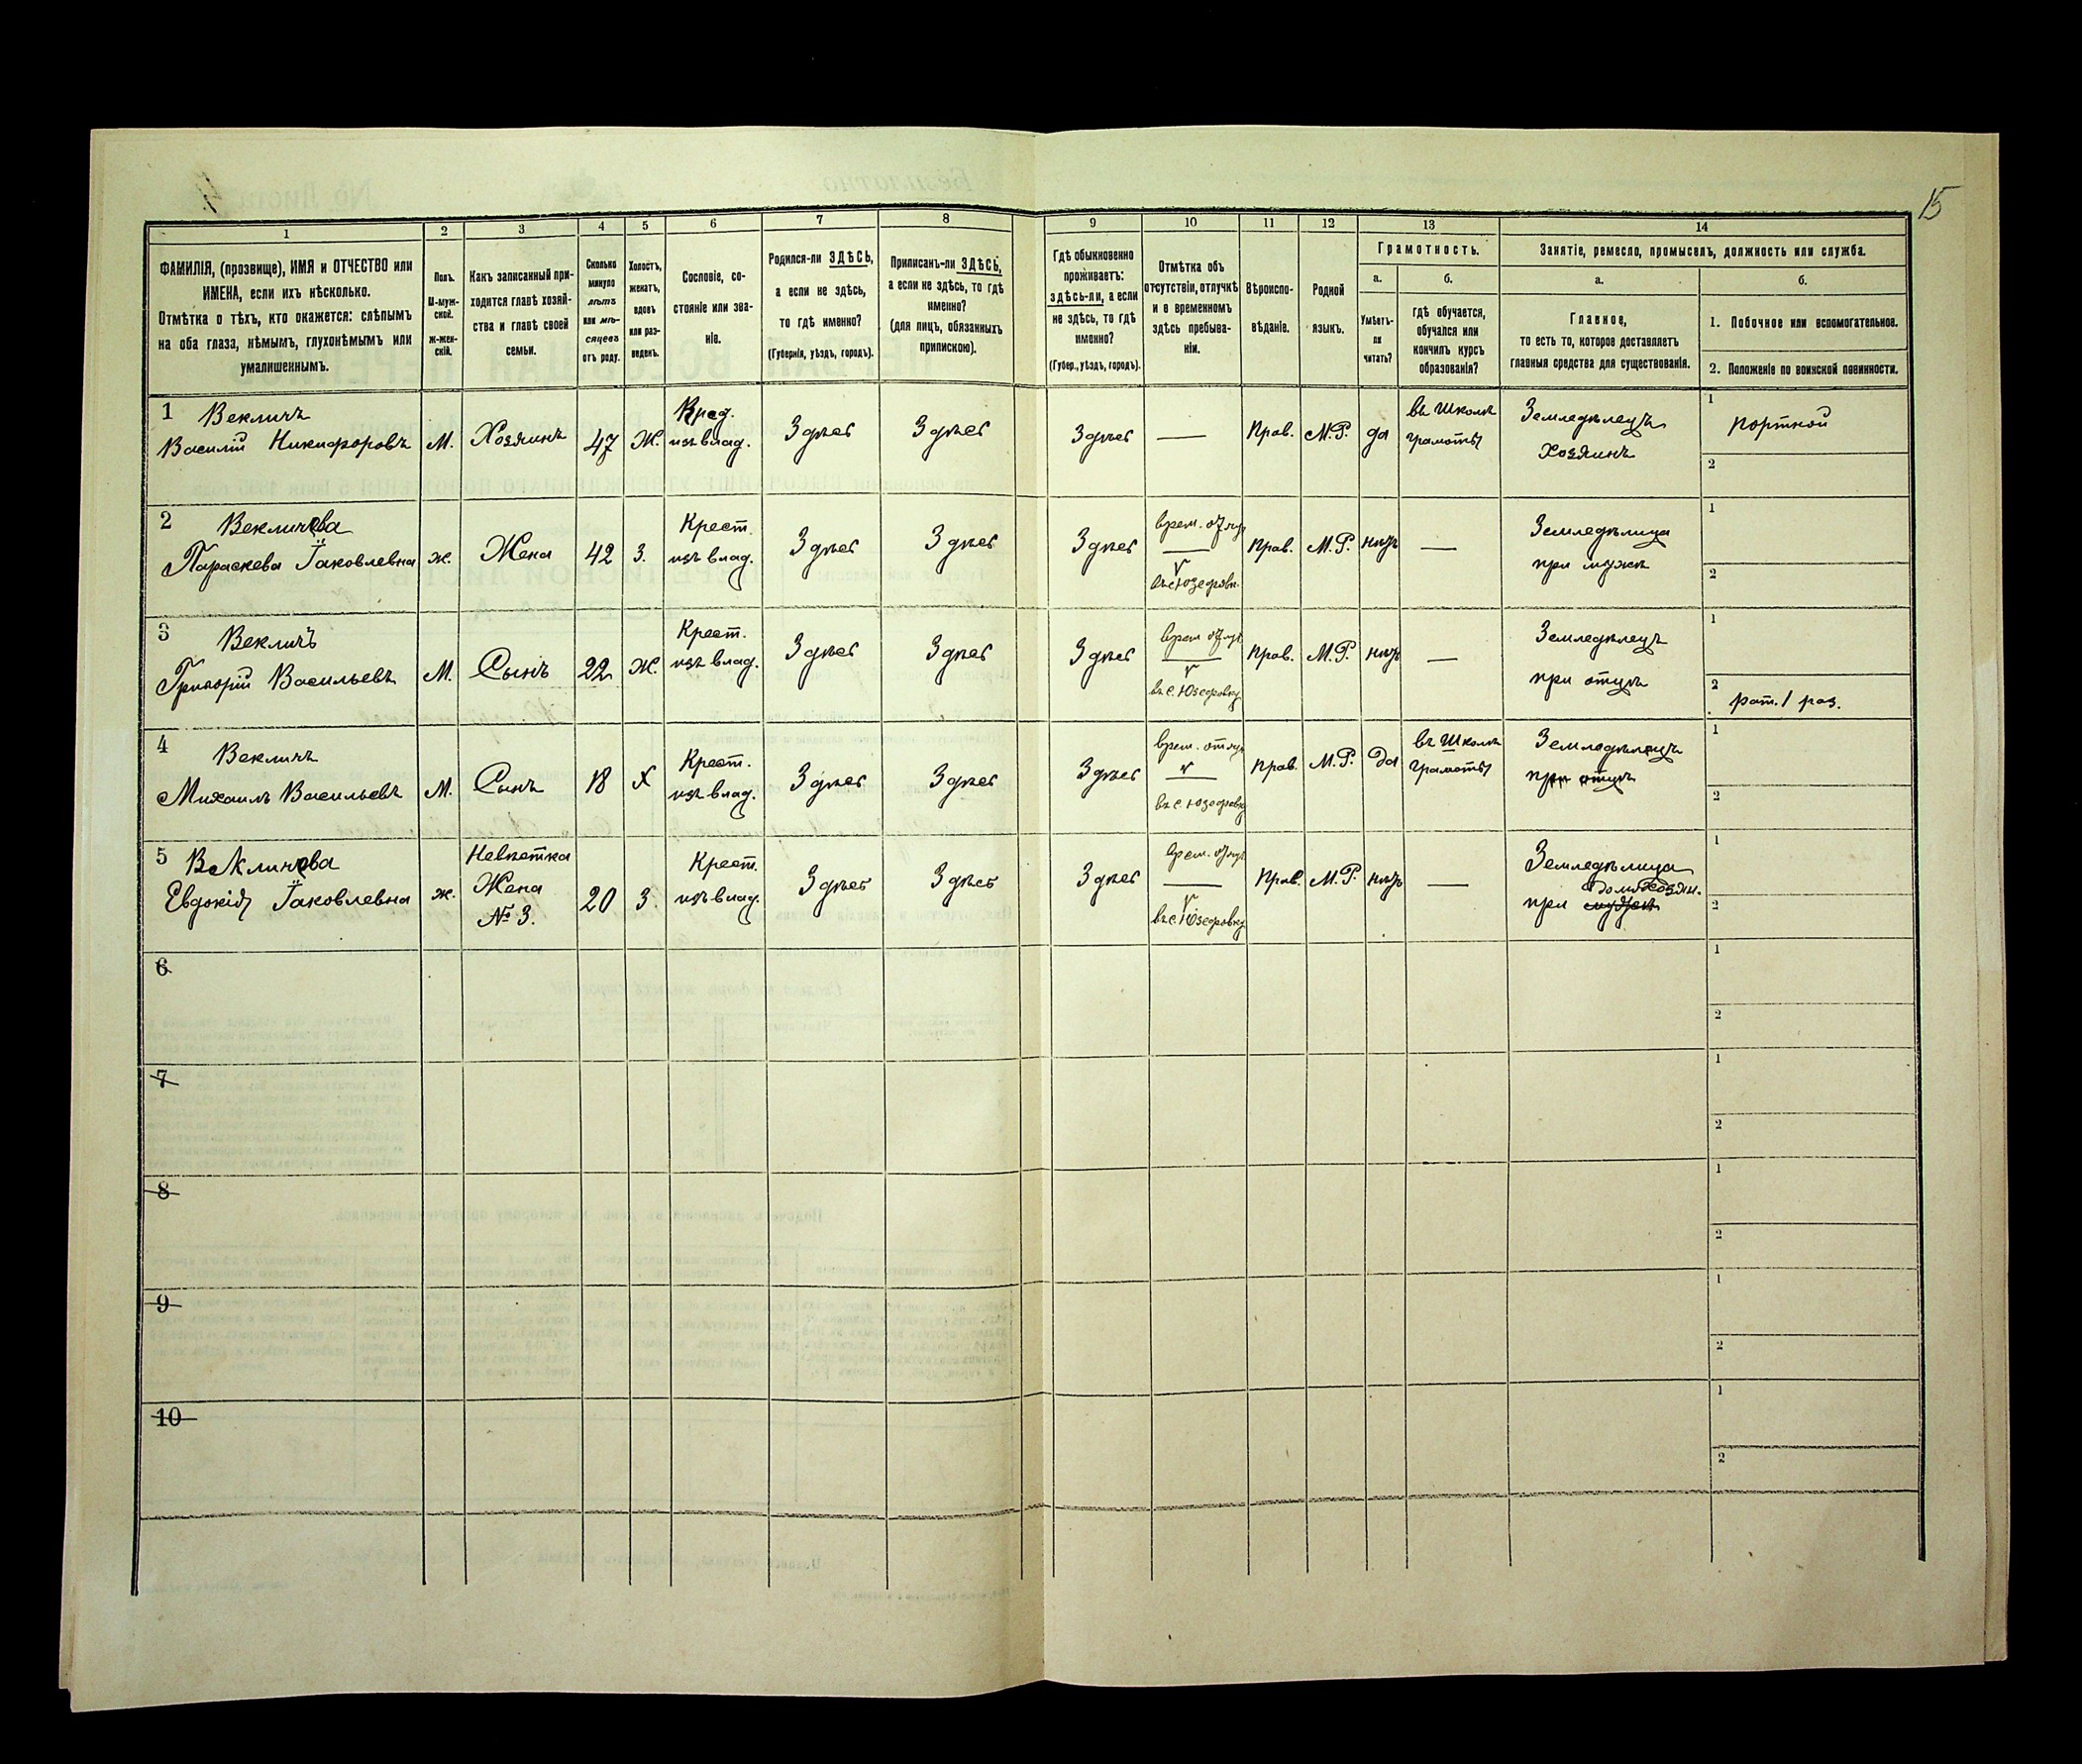 15
1
2
3
4
5
6
7
8
9
10
11
12
13
14
ФАМИЛІЯ, (прозвище), ИМЯ и ОТЧЕСТВО или
ИМЕНА, если ихъ нѣсколько.
Отмѣтка о тѣхъ, кто окажется: слѣпымъ
на оба глаза, нѣмымъ, глухонѣмымъ или
умалишеннымъ.
Полъ.
М-муж-
ской.
Ж-жен-
скій.
Какъ записанный при-
ходится главѣ хозяй-
ства и главѣ своей
семьи.
Сколько
минуло
лѣтъ
или мѣ-
сяцевъ
отъ роду.
Холостъ,
женатъ,
вдовъ
или раз-
веденъ.
Сословіе, со-
стояніе или зва-
ніе.
Родился-ли ЗДѢСЬ,
а если не здѣсь,
то гдѣ именно?
(Губернія, уѣздъ, городъ).
Приписанъ-ли ЗДѢСЬ,
а если не здѣсь, то гдѣ
именно?
(для лицъ, обязанныхъ
припискою).
Гдѣ обыкновенно
проживаетъ:
здѣсь-ли, а если
не здѣсь, то гдѣ
именно?
(Губер., уѣздъ, городъ).
Отмѣтка объ
отсутствіи, отлучкѣ
и о временномъ
здѣсь пребыва-
ніи.
Вѣроиспо-
вѣданіе.
Родной
языкъ.
Грамотность.
а.
Умѣетъ-
ли
читать?
б.
гдѣ обучается,
обучался или
кончилъ курсъ
образованія?
Занятіе, ремесло, промыселъ, должность или служба.
а.
Главное,
то есть то, которое доставляетъ
главныя средства для существованія.
б.
1. Побочное или вспомогательное.
2. Положеніе по воинской повинности.
1 Векличъ
Василій Никифоровъ
М.
Хозяинъ
47
Ж.
изъ влад.
Здѣсь
Здѣсь
Здѣсь
—
Прав.
М.Р.
да
въ Школѣ
грамоты
Земледѣлецъ
Хозяинъ
1
портной
2
2 Векличева
Параскева Іаковлевна
ж.
Жена
42
З.
Крест.
изъ влад.
Здѣсь
Здѣсь
Здѣсь
врем.
—
Прав.
М.Р.
нѣтъ
—
Земледѣлица
при мужѣ
1
2
3 Векличъ
Григорій Васильевъ
М.
Сынъ
22
Ж.
Крест.
изъ влад.
Здѣсь
Здѣсь
Здѣсь
врем
въ с. Юзефовку
Прав.
М.Р.
нѣтъ
—
Земледѣлецъ
при отцѣ
1
2
рат. 1 раз.
4 Векличъ
Михаилъ Васильевъ
М.
Сынъ
18
Х
Крест.
изъ влад.
Здѣсь
Здѣсь
Здѣсь
врем.
въ с. Юзефовку
Прав.
М.Р.
Да
въ Школѣ
грамоты
Земледѣлецъ
при отцѣ
1
2
5 Векличева
Евдокія Іаковлевна
ж.
Невѣстка
Жена
№ 3.
20
З.
Крест.
изъ влад.
Здѣсь
Здѣсь
Здѣсь
врем.
—
въ с. Юзефовку
Прав.
М.Р.
нѣтъ
—
Земледѣлица
домохозян.
при мужѣ
1
2
6
1
2
7
1
2
8
1
2
9
1
2
10
1
2